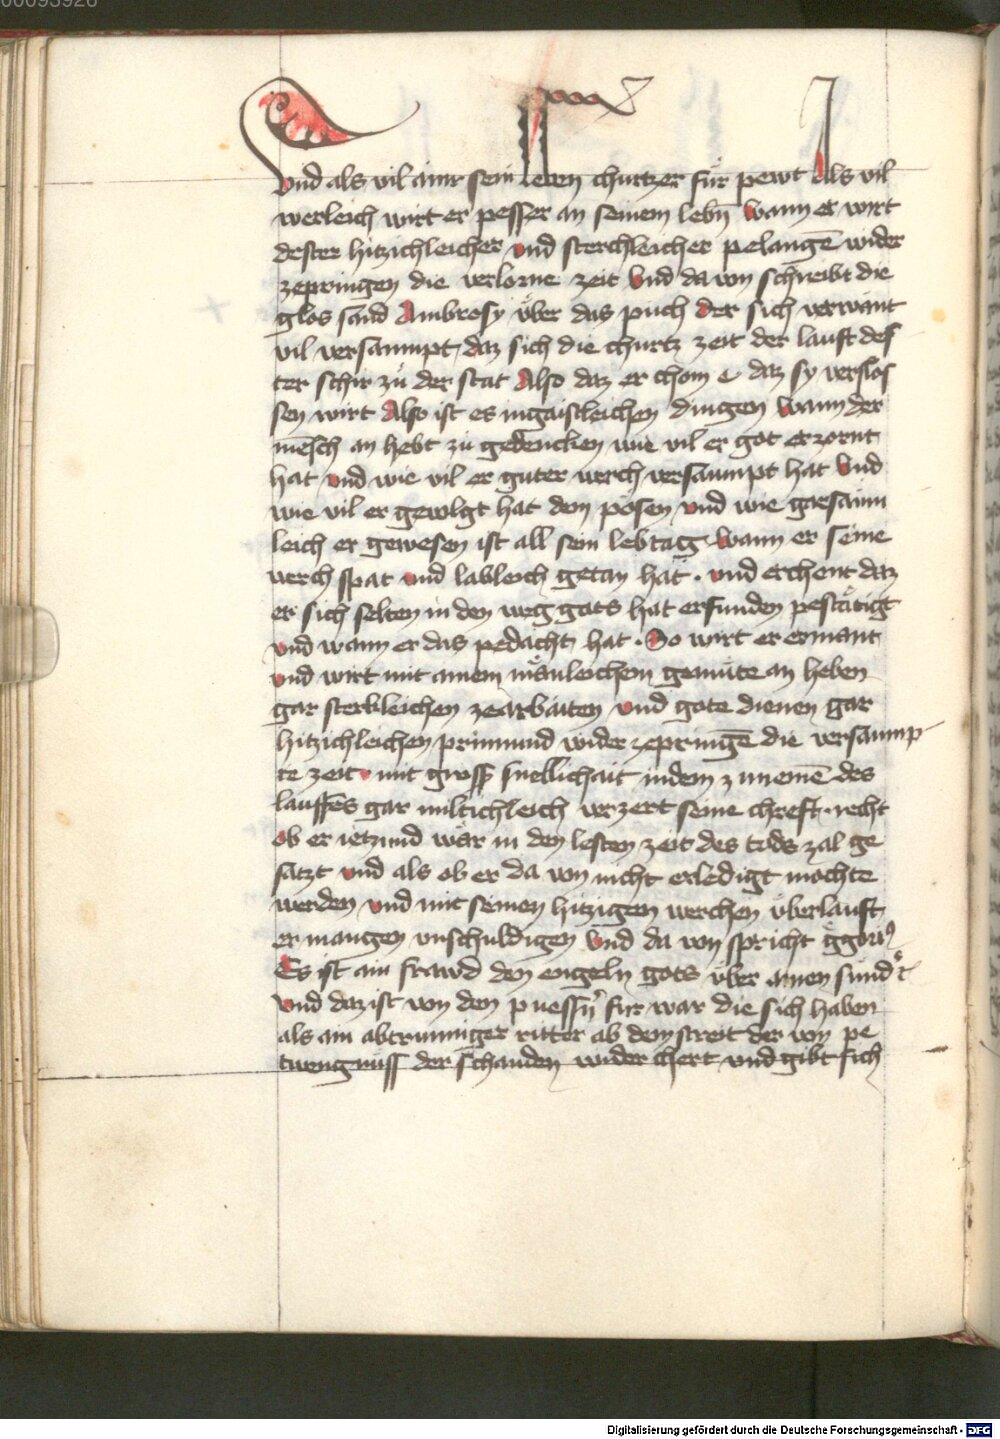 00093926
Vnd als vil ainr sein leben churtzer für pewt Als vil
werleich wirt er pesser an seinem lebn̄ wann er wirt
dester hitzichleicher vnd sterchleicher pelangē wider
zepringen die verlorne zeit Vnd da von schreibt die
glos sand Ambrosy über das puch der sich verwant
vil versaumpt daz sich die churtz zeit der lauft des
ter schir zu der stat Also daz er chom e daz sy verslos
sen wirt Also ist es in gaistleichen dingen Wann der
mēsch an hebt zu gedencken wie vil er got erzornt
hat vnd wie vil er guter werch versaumpt hat Vnd
wie vil er gevolgt hat den pösen vnd wie garsaum
leich er gewesen ist all sein lebtag Wann er seine
werch spat vnd lableich getan hat . vnd erchent daz
er sich selten in den weg gots hat erfunden pestätigt
vnd wann er das pedacht hat . So wirt er ermant
vnd wirt mit ainem mänleichem gemüte an heben
gar sterkleichen zearbaiten vnd gote dienen gar
hitzichleichen prinnund wider zepringē die versaump
te zeit mit gross snellichait in dem zunemē des
lauffes gar miltichleich verzert seine chreft . recht
ob er ietzund wär in den lesten zeit des tods zal ge
satzt vnd als ob er da von nicht erledigt mochte
werden vnd mit seinen hitzigen werchen überlauft
er mangen vnschuldigen Vnd da von spricht Ggorius
Es ist ain frawd den engeln gots über ainen sunder
Vnd daz ist von den puessn̄ fur war die sich haben
als ain abtrunniger ritter ab dem streit der von pe
twengnuss der schanden wider chert vnd gibt sich
Digitalisierung gefördert durch die Deutsche Forschungsgemeinschaft - DFG